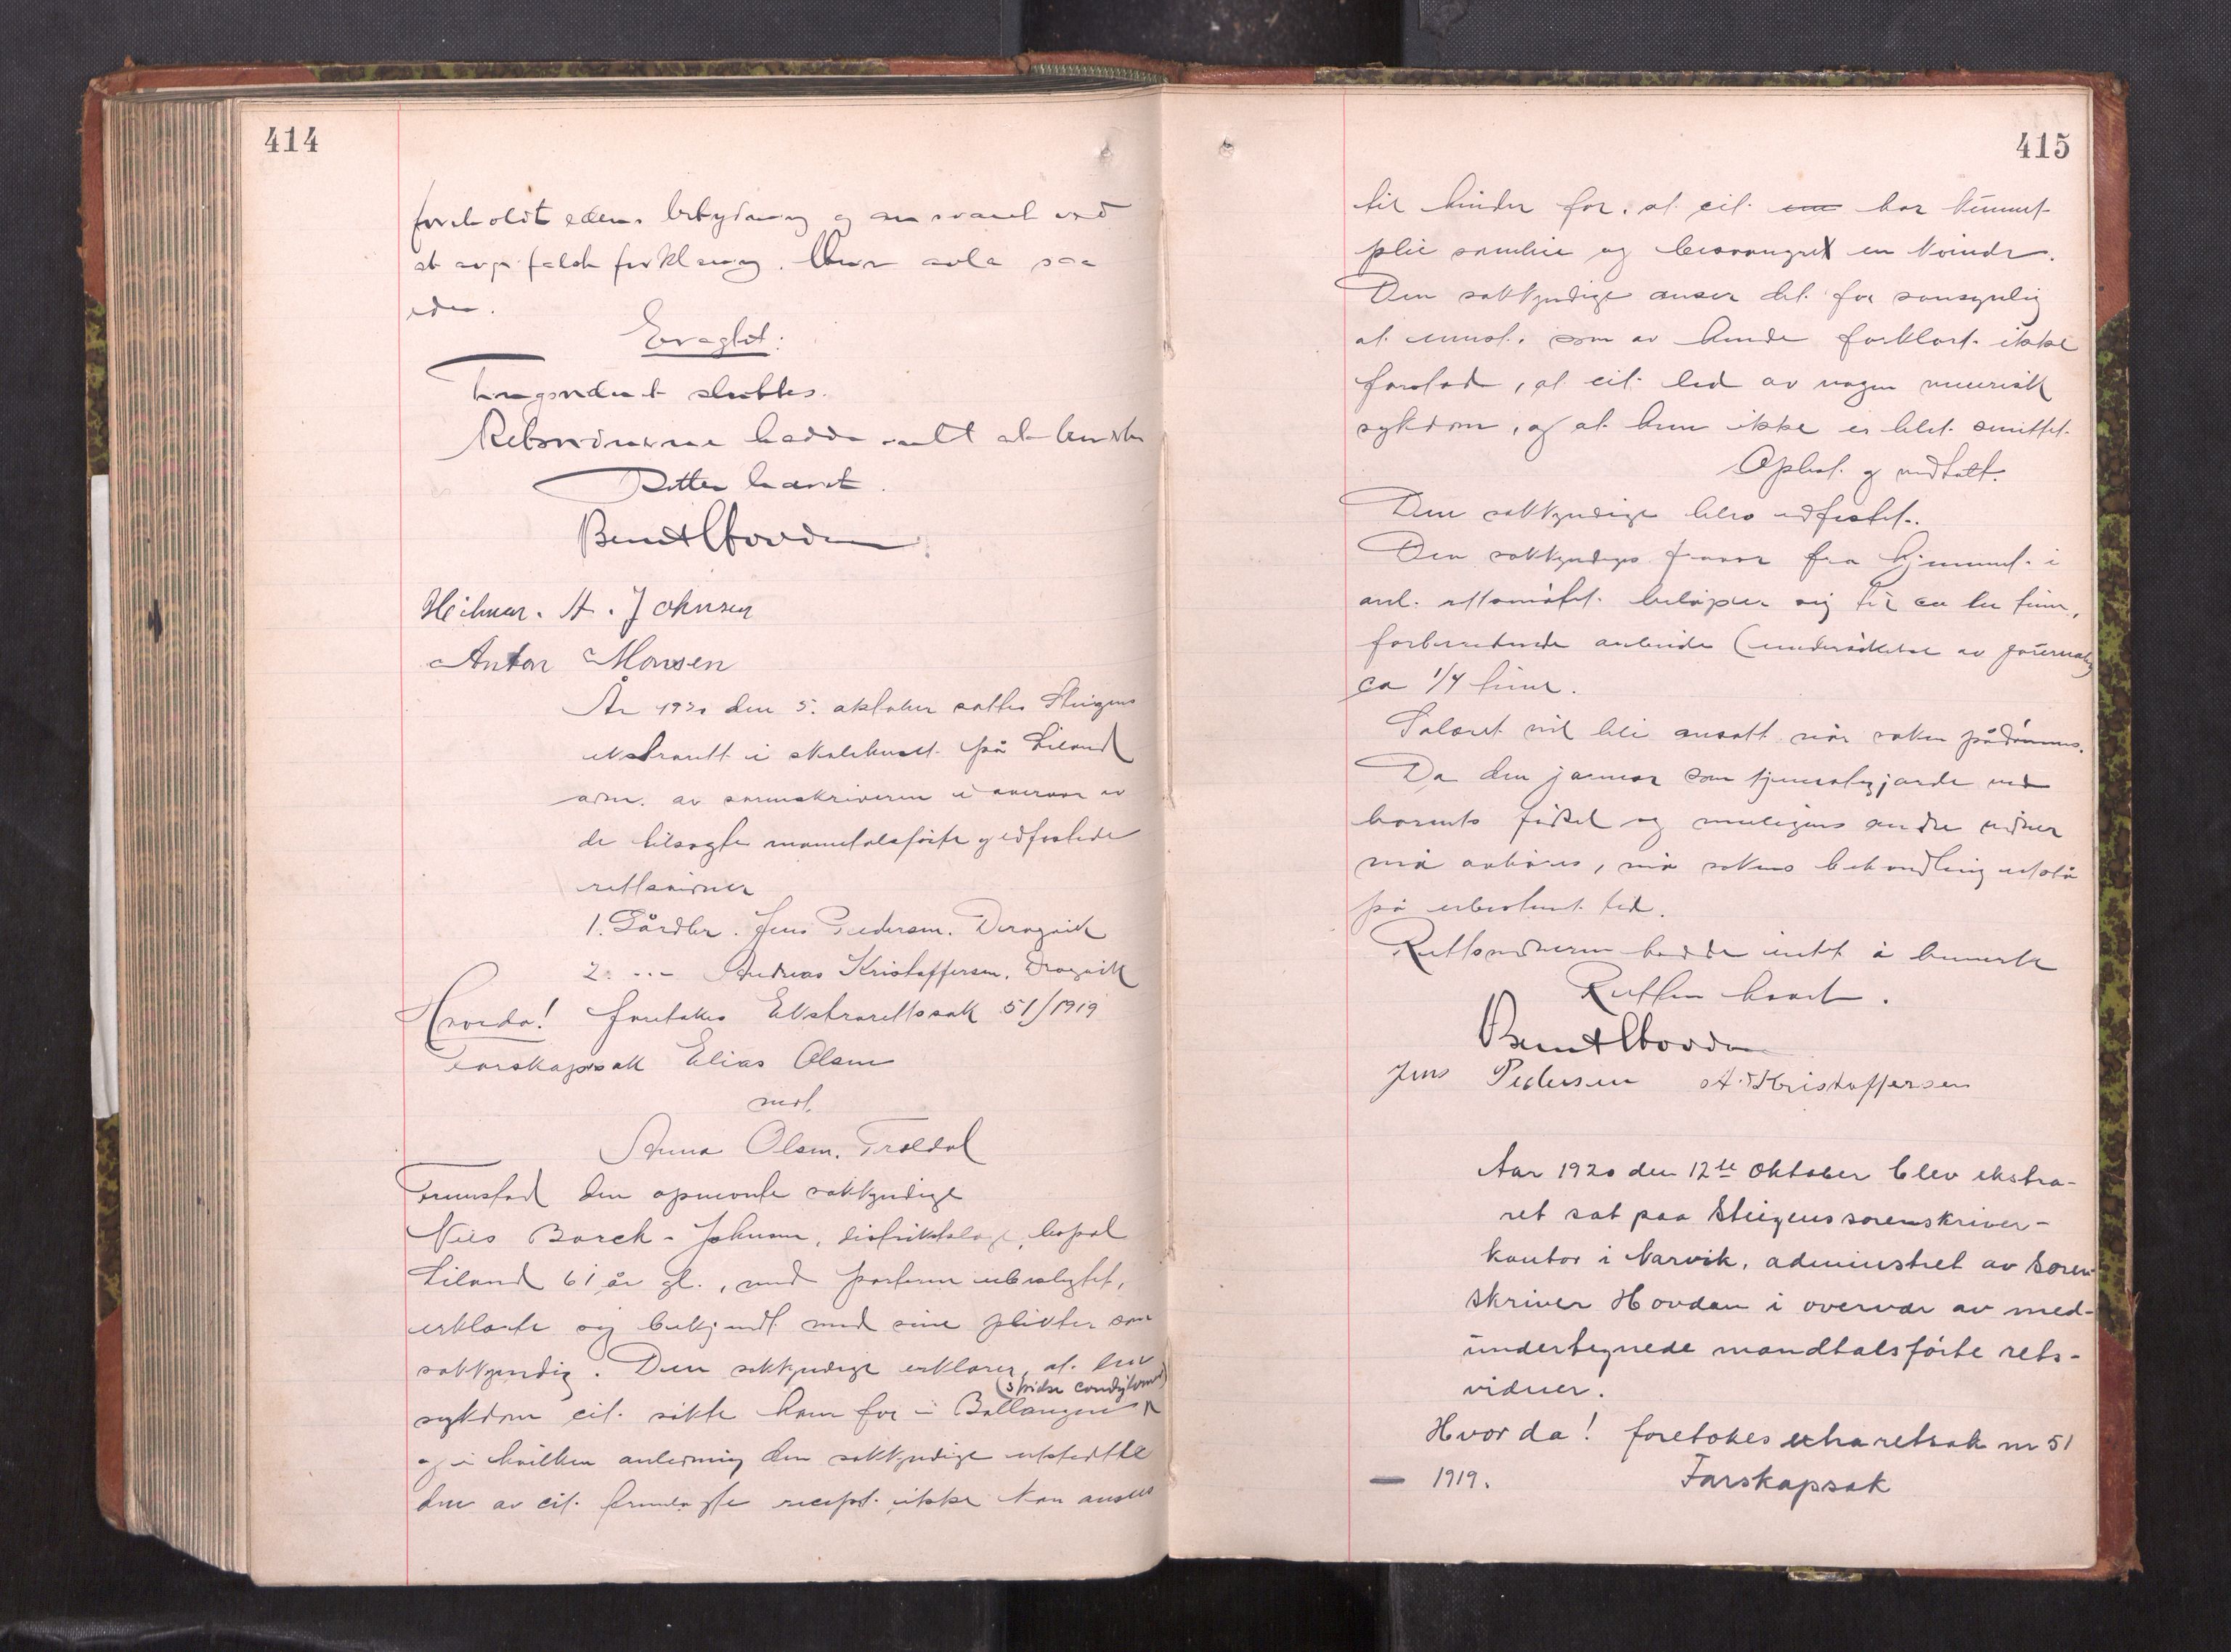 414
foreholdt edens betydning og ansvaret ved
at avgi falsk forklaring. Hun avla saa
eden.
Oplæst:
Tingvidnet sluttes.
Retsvidnerne hadde intet at bemerke
Retten hævet.
Bernt Hovdan
Heilmar. A. Johnsen
Anton Monsen
År 1920 den 5. oktober sattes Steigens
ekstrarett i skolehuset på Liland
adm. av sorenskriveren i overvær av
de tilsagte manntalsførte og edfestede
rettsvidner
1. Gårdbr. Jens Pedersen. Dragvik
2. -"- Andreas Kristoffersen. Dragvik
Hvorda! foretokes Ekstrarettssak 51/1919
Farskapssak Elias Olsen
mot
Anna Olsen. Troldal
Fremstod den opnevnte sakkyndige
Nils Borch-Johnsen, distriktslæge, bopæl
Liland 61 år gl., med parterne ubeslegtet,
erklærte sig bekjendt med sine plikter som
sakkyndig. Den sakkyndige erklærer, at den
(spidse condylomer)
sykdom cit. søkte ham for i Ballangen
og i hvilken anledning den sakkyndige utstedte
den av cit. fremlagte recept ikke kan ansees
415
til hinder for, at cit. har kunnet
pleie samleie og besvangret en kvinde.
Den sakkyndige anser det for sansynlig
at som av hende forklart ikke
forstod, at cit. led av nogen venerisk
sykdom, og at hun ikke er blet smittet.
Oplæst og vedtatt.
Den sakkyndige blev edfestet.
Den sakkyndiges fravær fra hjemmet i
anl. rettsmøtet beløper sig til ca to timer,
forberedende arbeide (undersøkelse av journaler)
ca 1/4 time.
Salæret vil bli ansatt når saken pådømmes.
Da den jormor som tjenestegjorde ved
barnets fødsel og muligens andre vidner
må avhøres, må sakens behandling utstå
på ubestemt tid.
Rettsvidnerne hadde intet å bemerke
Retten hævet.
Bernt Hovdan
Jens Pedersen A. Kristoffersen
Aar 1920 den 12te Oktober blev ekstra-
ret sat paa Steigens sorenskriver-
kontor i Narvik, administret av Soren-
skriver Hovdan i overvær av med-
undertegnede mandtalsførte rets-
vidner.
Hvor da! foretokes extraretssak nr 51
— 1919. Farskapssak